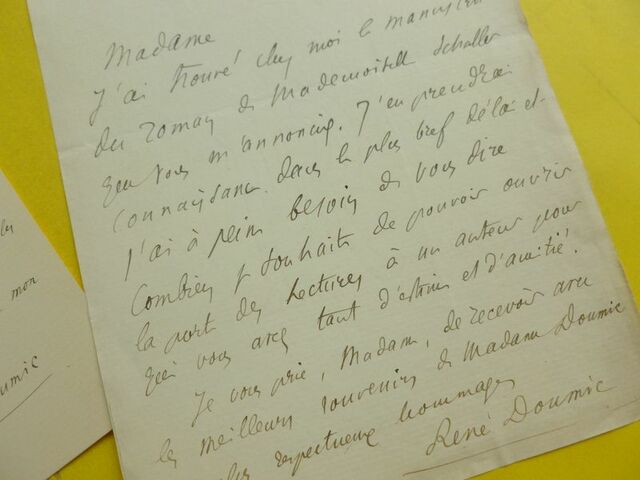 Madame
J'ai trouvé chez moi le manuscrit
du roman de Mademoiselle Schaller
que vous m'annonciez. J'en prendrai
connaissance dans le plus bref délai et
j'ai à peine besoin de vous dire
combien je souhaite de pouvoir ouvrir
la porte des Lectures à un auteur pour
qui vous avez tant d'estime et d'amitié.
Je vous prie, Madame, de recevoir avec
les meilleurs souvenirs de Madame Doumic
respectueux hommages
René Doumic
mon
oumic